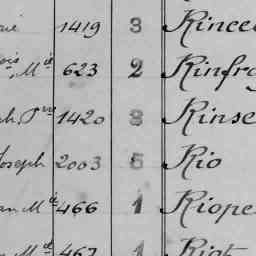 1419 3 Rince
ois Mie 623 2 Rinfr
h. Pre 1420 3 Rinse
Joseph 2003 5 Rio
an Mie 466 1 Riope
Mie 467 1 Riot